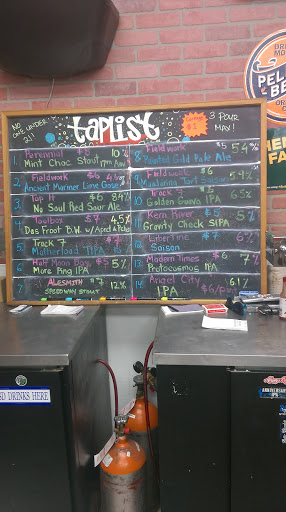 NO ONE UNDER 21!
TAPLIST
3 POUR MAX!
1. Perennial 10%
Mint Choc Stout
2. Fieldwork $6
Ancient Mariner Lime Gose
3. Tap It $6 8.4%
No Soul Red Sour Ale
4. Toolbox $7 4.5%
Das Froot B.W. w/ Apricot & Peche
5. Track 7 $7
Motherload TIPA
6. Half Moon Bay $5 5%
More Ping IPA
7. Alesmith $7 12%
Speedway Stout
8. Fieldwork $5 5.4%
Painted Gold Pale Ale
9. Fieldwork $6 5.4%
Tart Saison
10. Track 7 6.5%
Golden Guava IPA
11. Kern River $5 5%
Gravity Check SIPA
12. Libertine $7 6%
Saison
13. Modern Times $6 7%
Protocosmos IPA
14. Angel City 6.1%
IPA
SD DRINKS HERE
ANNIVERSARY